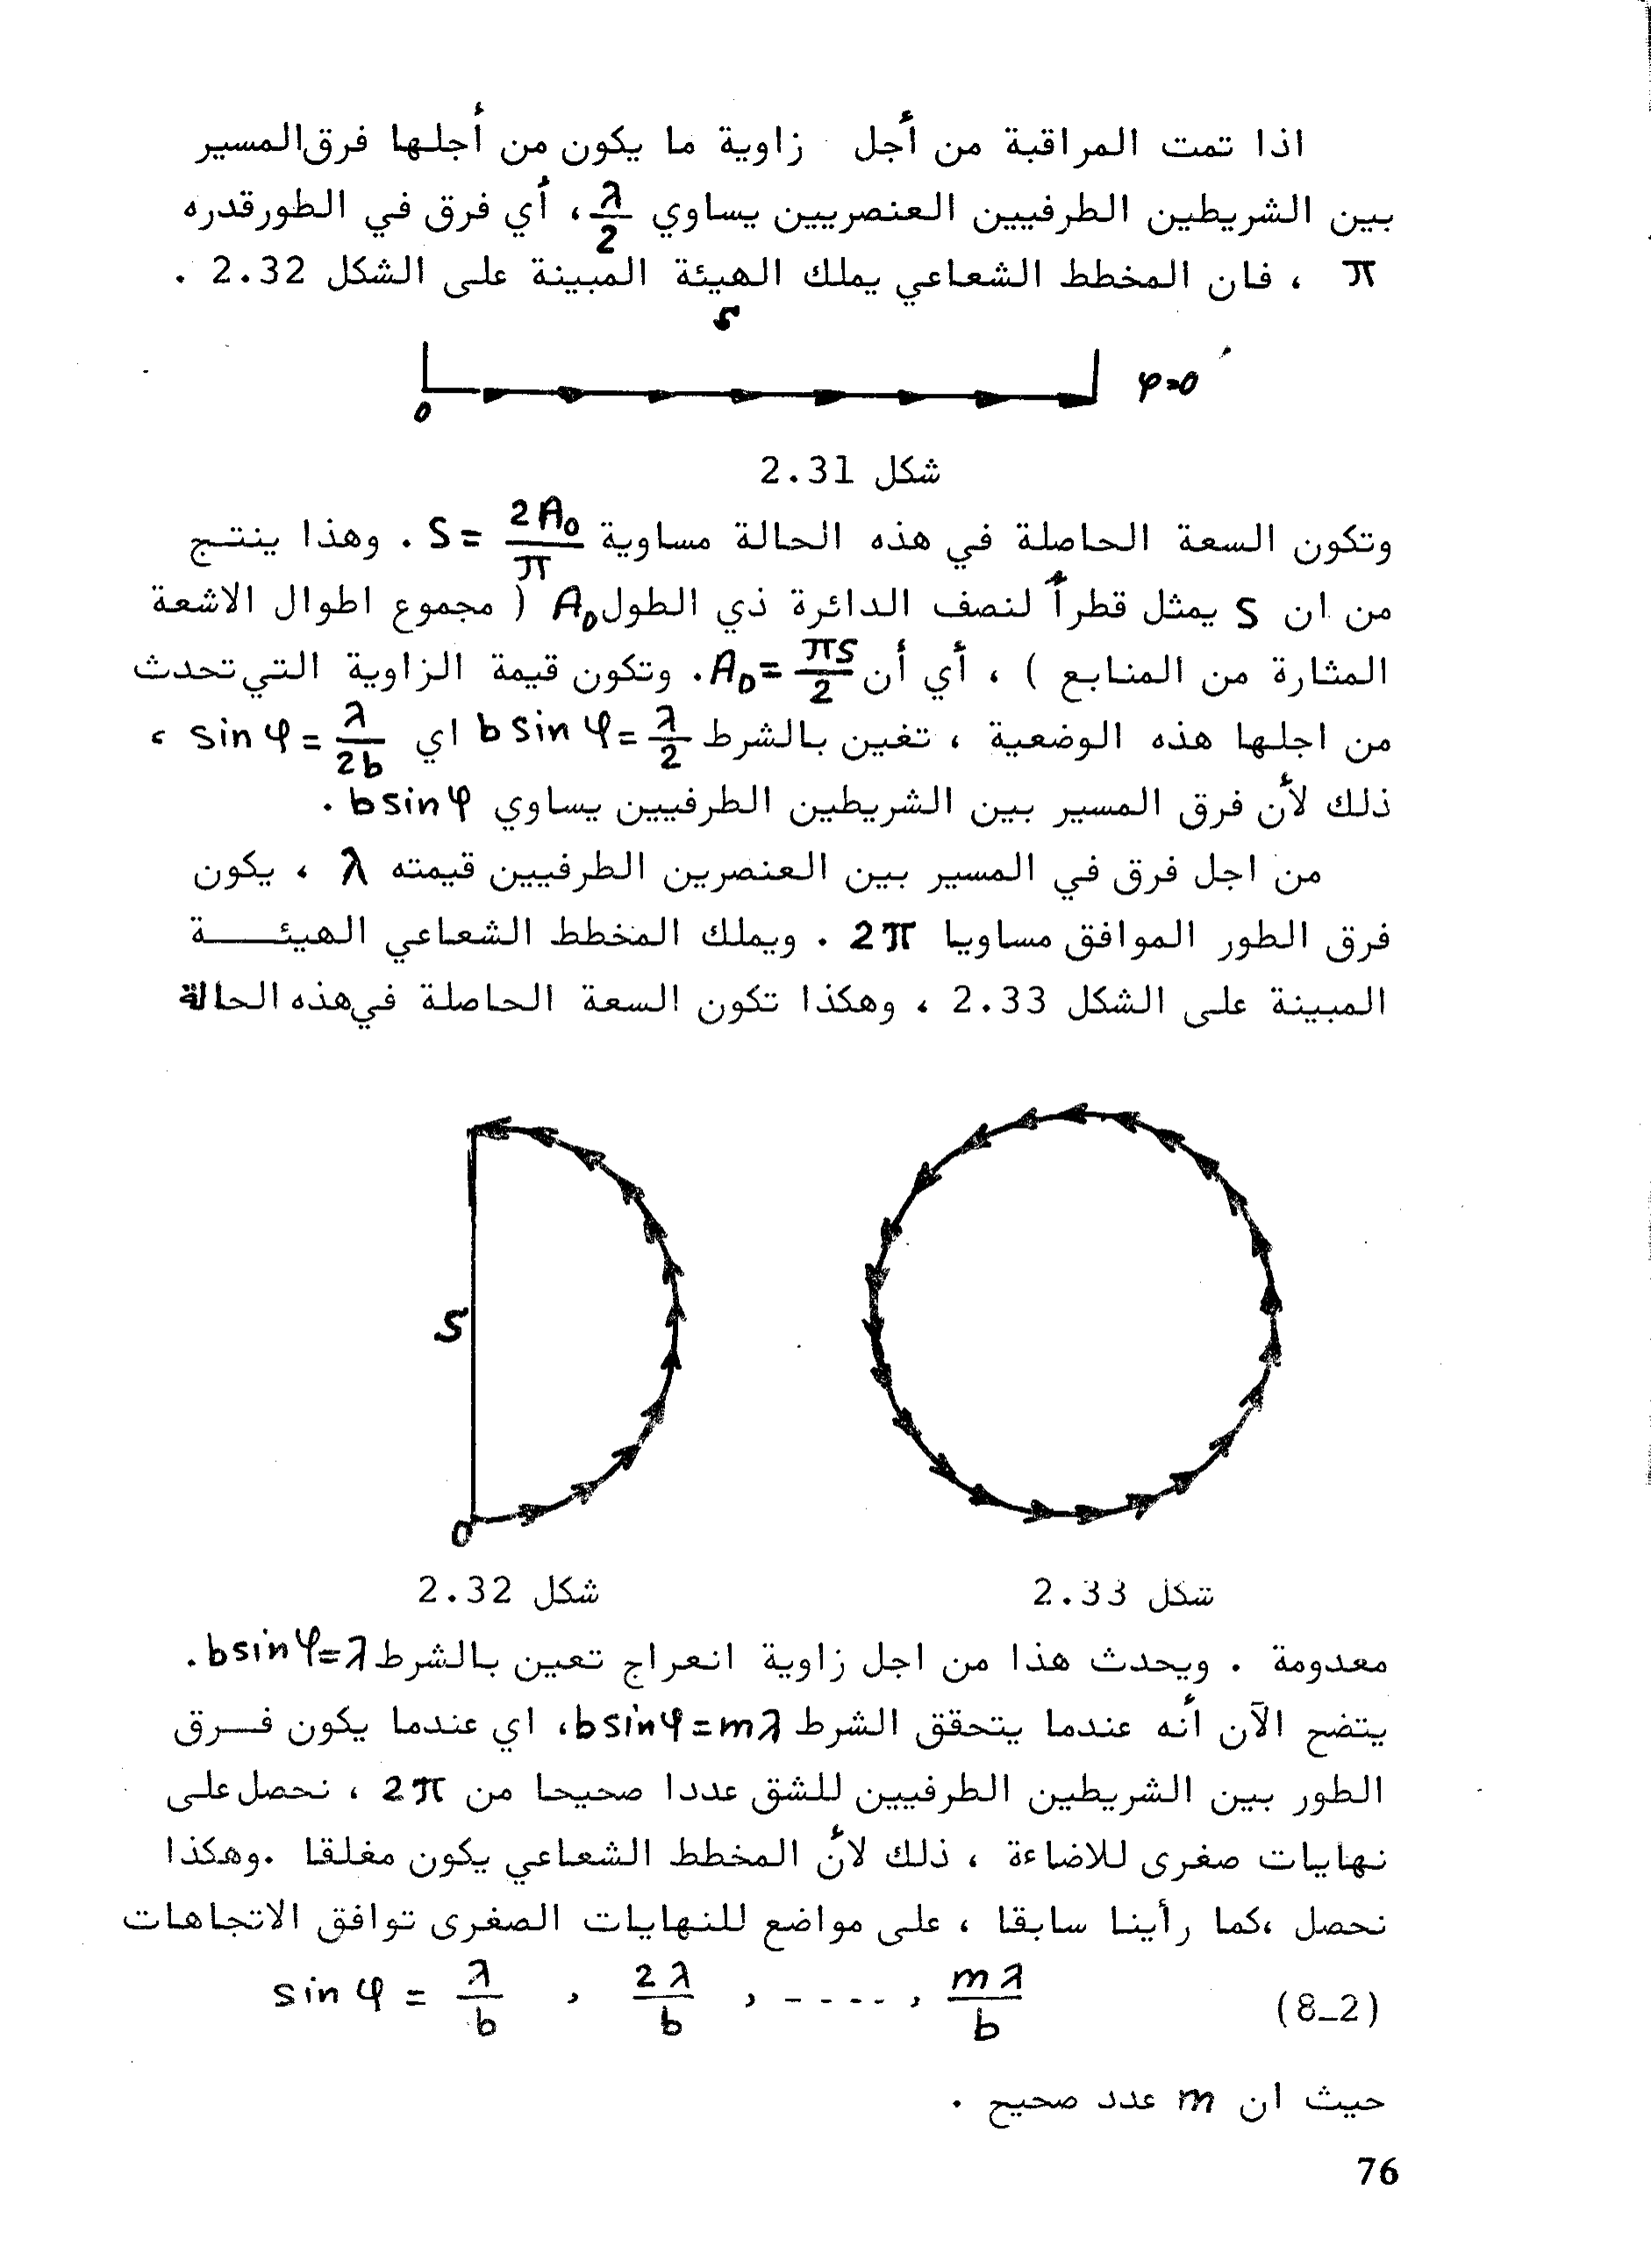 اذا تمت المراقبة من أجل زاوية ما يكون من أجلها فرق المسير
بين الشريطين الطرفيين العنصريين يساوي λ/2 ، أي فرق في الطور قدره
π ، فان المخطط الشعاعي يملك الهيئة المبينة على الشكل 2.32 .
S
0 φ=0
شكل 2.31
وتكون السعة الحاصلة في هذه الحالة مساوية S = 2A₀/π . وهذا ينتـج
من ان S يمثل قطراً لنصف الدائرة ذي الطول A₀ ( مجموع اطوال الاشعة
المثارة من المنابع ) ، أي أن A₀ = πS/2 . وتكون قيمة الزاوية التي تحدث
من اجلها هذه الوضعية ، تغين بالشرط b sin φ = λ/2 اي sin φ = λ/2b ،
ذلك لأن فرق المسير بين الشريطين الطرفيين يساوي b sin φ .
من اجل فرق في المسير بين العنصرين الطرفيين قيمته λ ، يكون
فرق الطور الموافق مساويا 2π . ويملك المخطط الشعاعي الهيئـــــة
المبينة على الشكل 2.33 ، وهكذا تكون السعة الحاصلة في هذه الحالة
S
0
شكل 2.32
شكل 2.33
معدومة . ويحدث هذا من اجل زاوية انعراج تعين بالشرط b sin φ = λ .
يتضح الآن أنه عندما يتحقق الشرط b sin φ = mλ ، اي عندما يكون فــرق
الطور بين الشريطين الطرفيين للشق عددا صحيحا من 2π ، نحصل على
نهايات صغرى للاضاءة ، ذلك لأن المخطط الشعاعي يكون مغلقا . وهكذا
نحصل ، كما رأينا سابقا ، على مواضع للنهايات الصغرى توافق الاتجاهات
sin φ = λ/b , 2λ/b , ----- , mλ/b (8_2)
حيث ان m عدد صحيح .
76